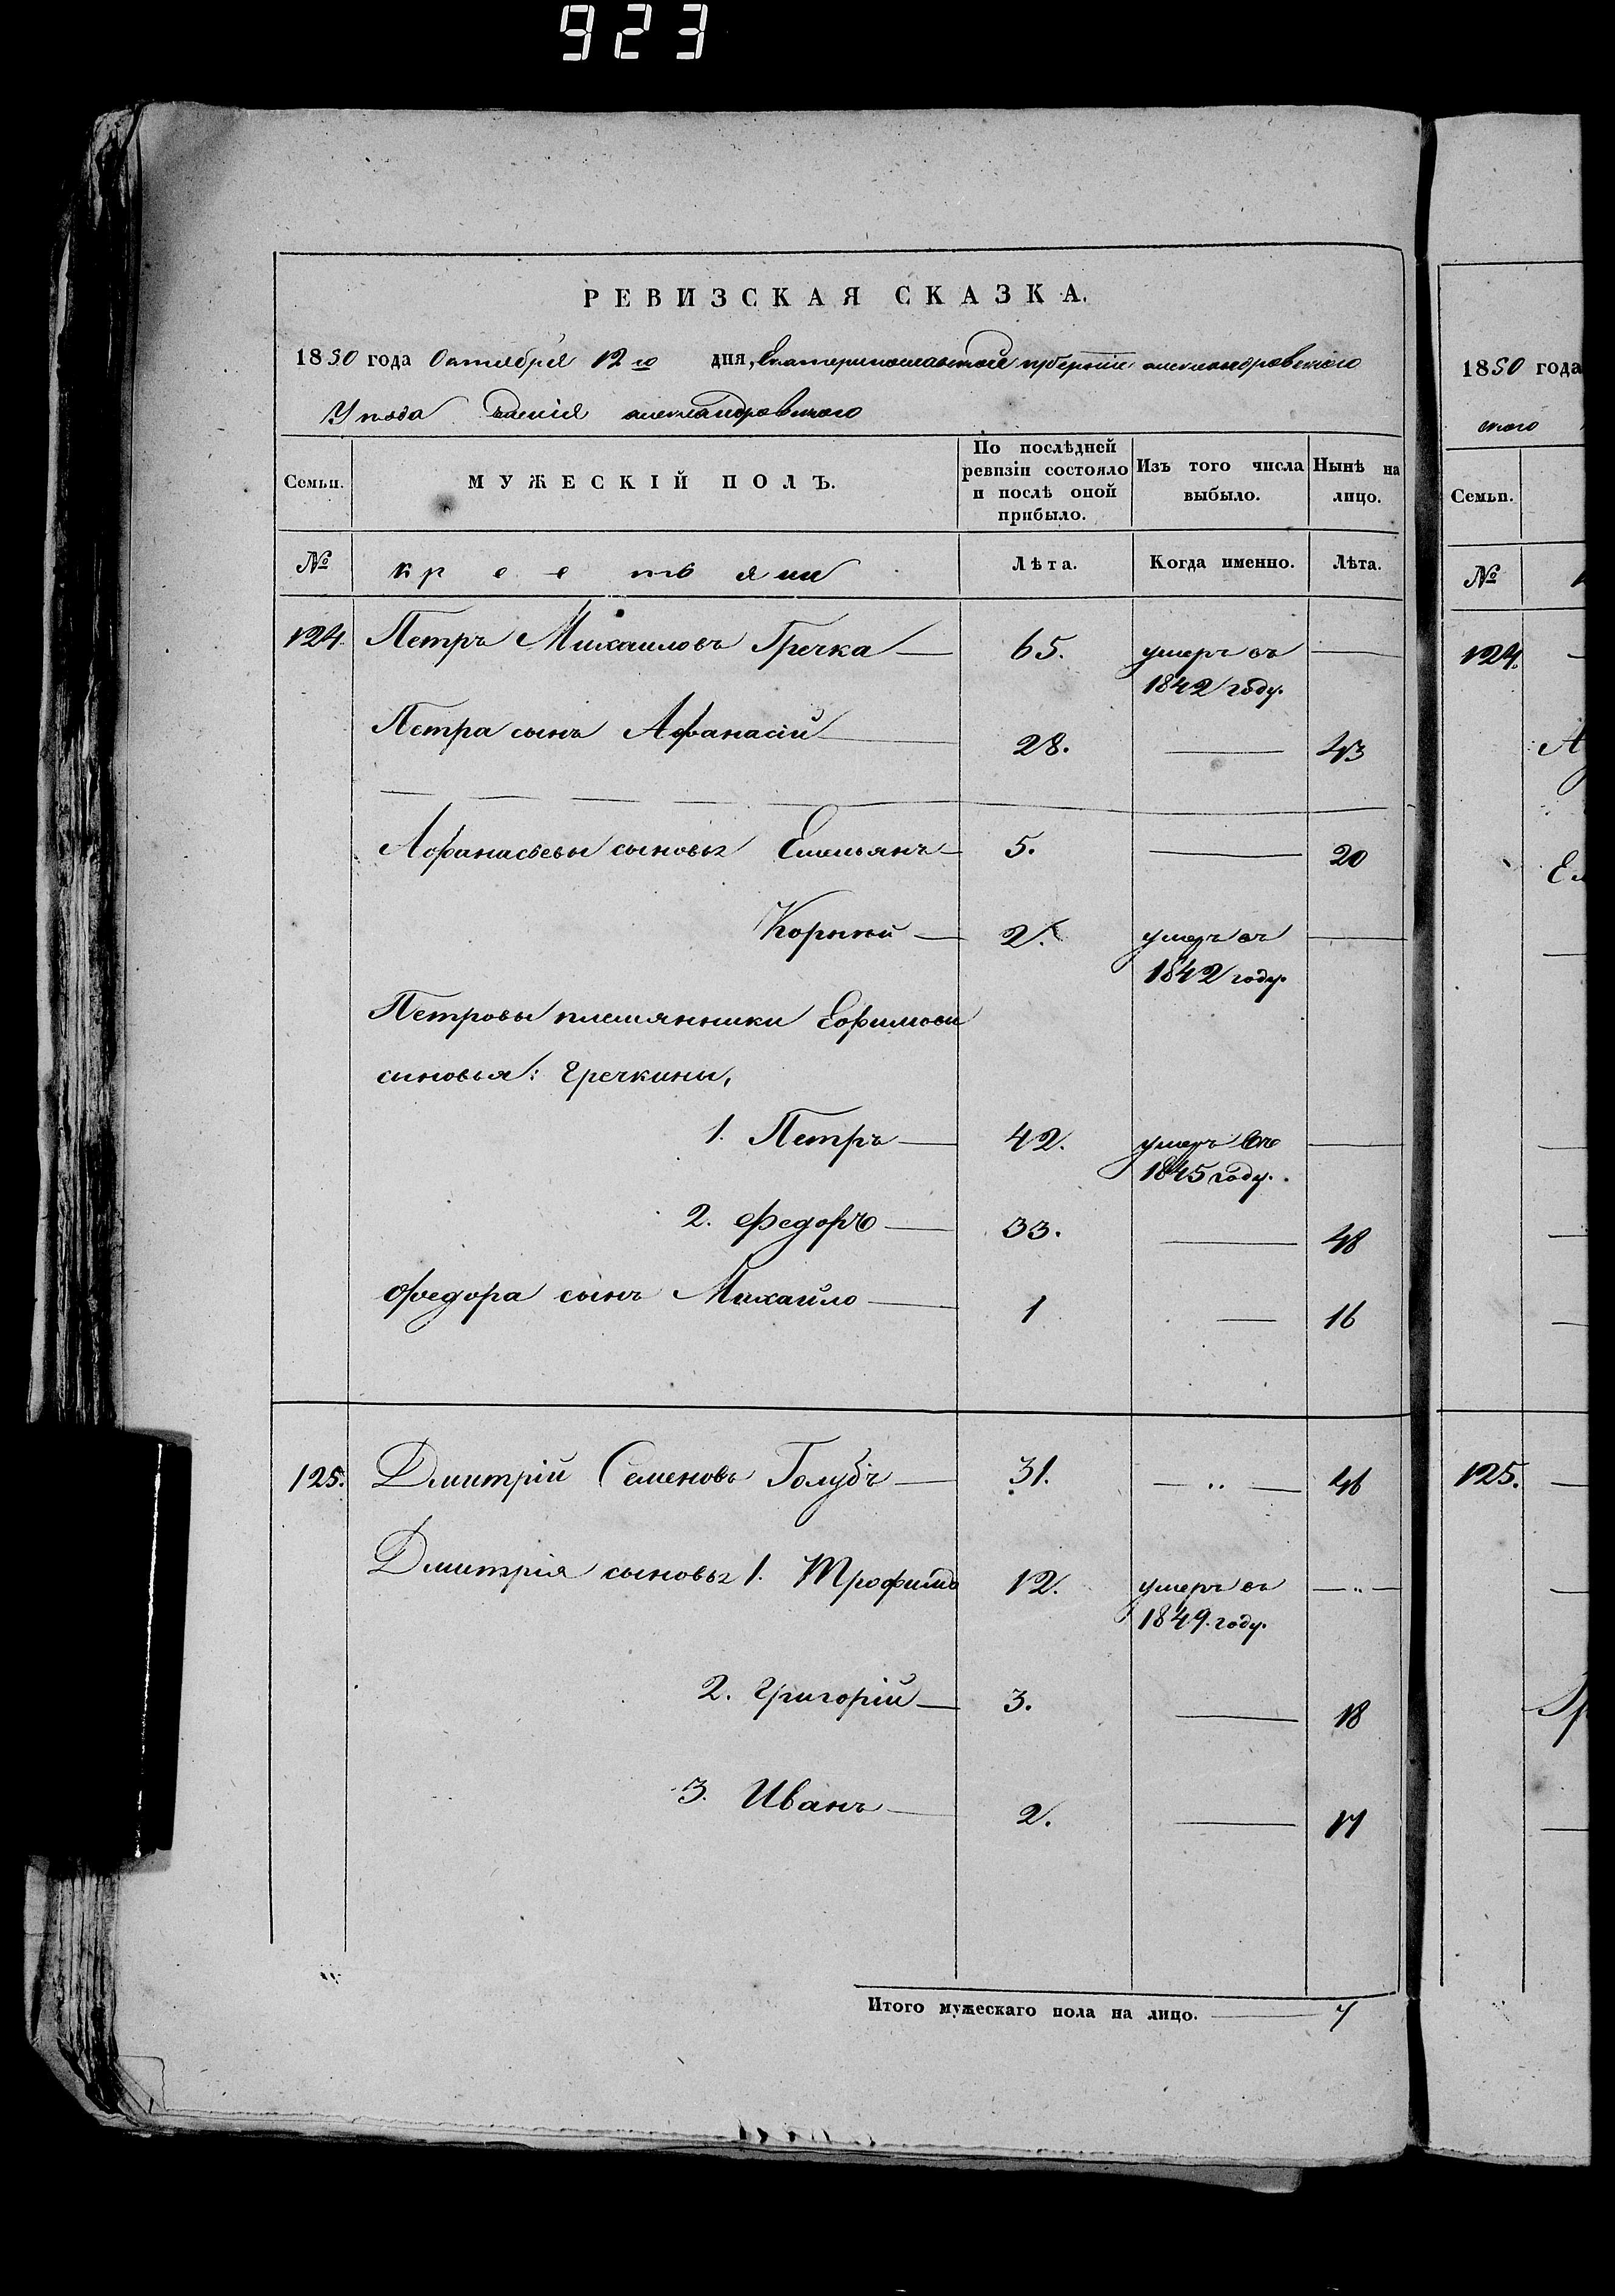 923
РЕВИЗСКАЯ СКАЗКА.
1850 года Октября 12го дня, Екатеринославской губернии александровского
Уезда имения александровского
Семьи. МУЖЕСКІЙ ПОЛЪ. По послѣдней ревизіи состояло и послѣ оной прибыло. Изъ того числа выбыло. Нынѣ на лицо.
№ крестьяни Лѣта. Когда именно. Лѣта.
124 Петръ Михаиловъ Гречка — 65. умеръ въ —
1842 году.
Петра сынъ Афанасій — 28. — 43
Афанасьевы сыновья Емельянъ — 5. — 20
Корнѣй — 2. умеръ въ —
1842 году.
Петровы племянники Ефимови
синовья: Гречкины,
1. Петръ — 42. умеръ въ —
1845 году.
2. Федоръ — 33. — 48
Федора сынъ Михайло — 1 — 16
125. Дмитрій Семеновъ Голубъ — 31. — „ — 46
Дмитрія сыновья 1. Трофимъ 12. умеръ въ — „ —
1849. году.
2. Григорій — 3. — 18
3. Иванъ — 2. — 17
Итого мужескаго пола на лицо. — 7
1850 года
ского
Семьи.
№
124.
125.